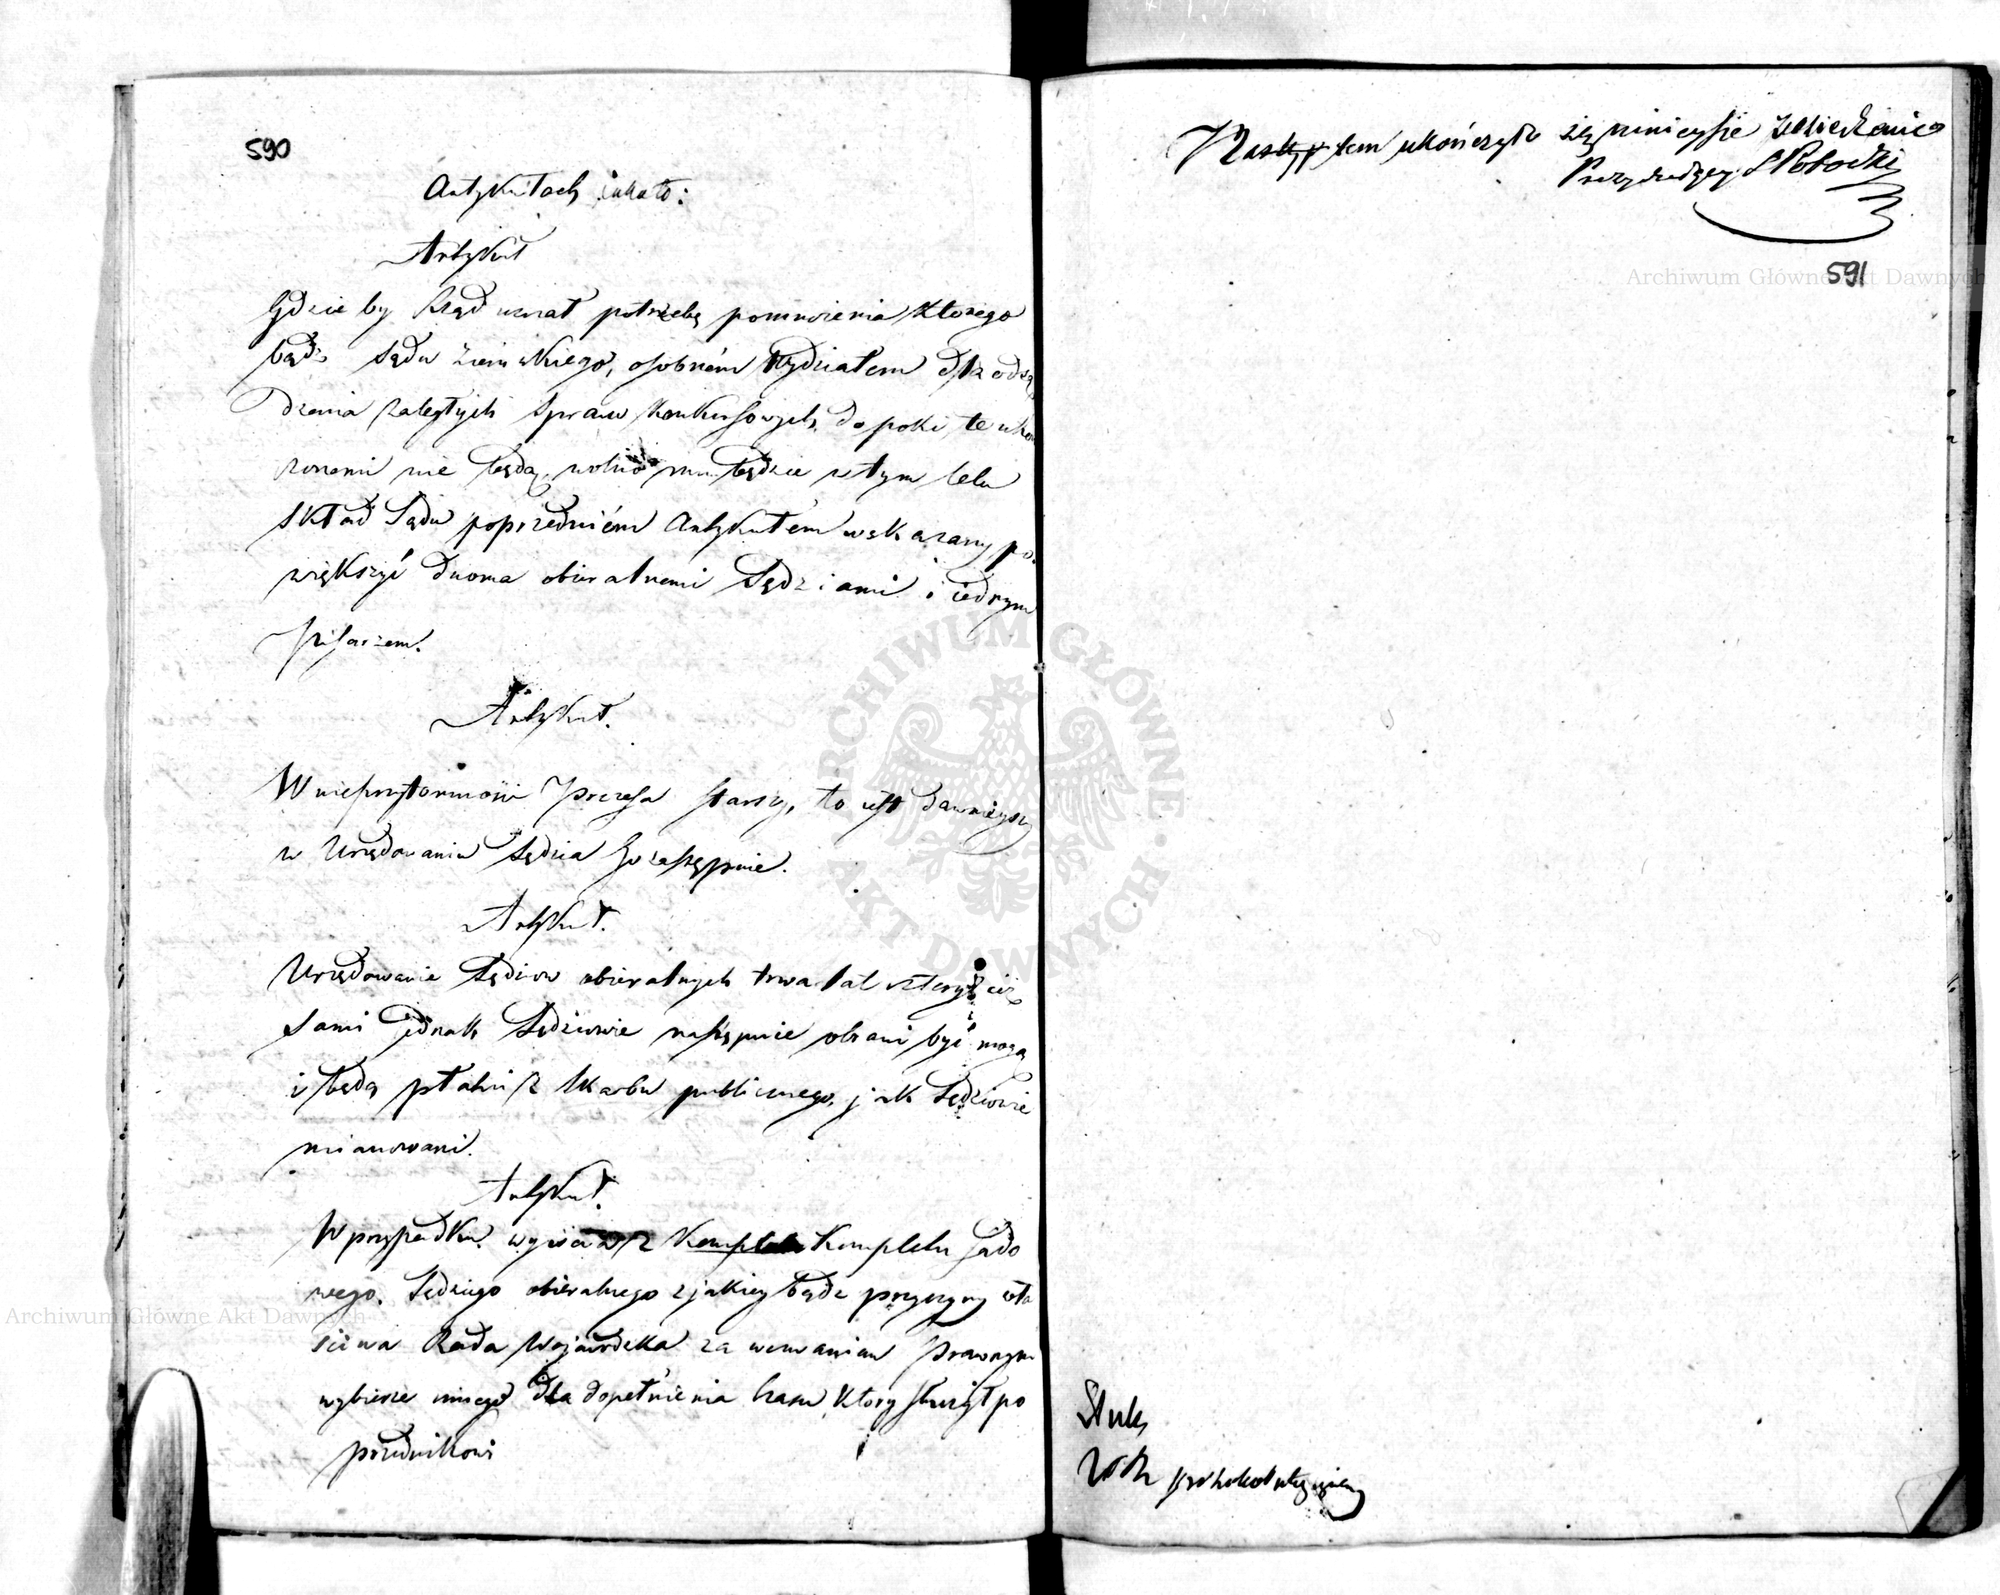 590
Artykułach iakoto:
Artykuł
Gdzie by Rząd uznał potrzebę pomnożenia ktorego
bądź Sądu Ziemskiego, osobném Wydziałem dla odsą
dzenia zaległych Spraw Konkursowych, do poki te ukoń
czonemi nie będą, wolno mu będzie w tym celu
Skład Sądu poprzedniém Artykułém wskazany po
większyć dwoma obieralnemi Sędziami i iednym
Pisarzem.
Artykuł.
W nieprzytomności Prezesa starszy, to iest dawnieyszy
w Urzędowaniu Sędzia go zastępuie.
Artykuł.
Urzędowanie Sędziow obieralnych trwa lat cztery, ciż
sami jednak Sędziowie następnie obrani być mogą
i będą płatni z Skarbu publicznego, jak Sędziowie
mianowani.
Artykuł.
W przypadku wyiścia z Kompletu Kompletu Sądo
wego, Sędziego obieralnego z jakiey bądź przyczyny wła
ściwa Rada Wojewódzka za wezwaniem Prawnym
wybierze innego dla dopełnienia czasu, ktory służył po
przednikowi
Na tym ukończyło się ninieysze posiedzenie
Prezyduiący S Potocki
591
Archiwum Główne Akt Dawnych
ARCHIWUM GŁÓWNE AKT DAWNYCH
Archiwum Główne Akt Dawnych